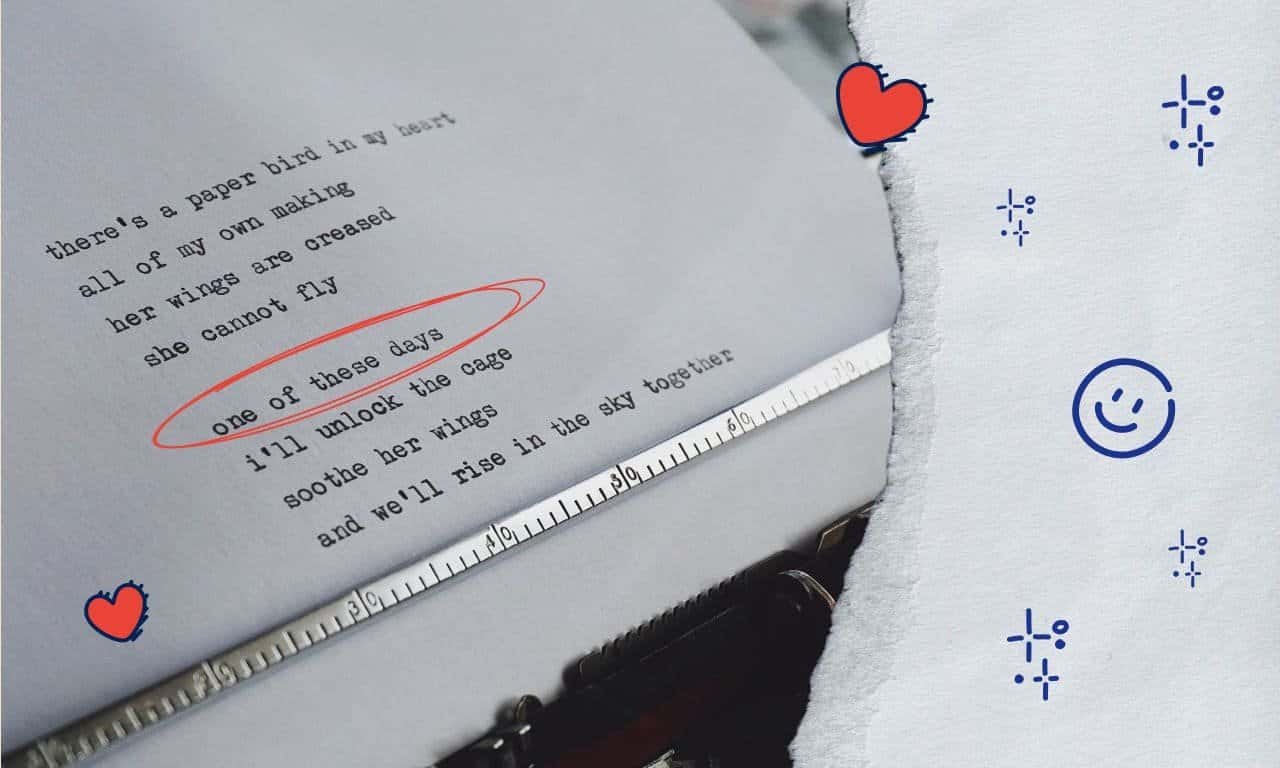 there's a paper bird in my heart
all of my own making
her wings are creased
she cannot fly
one of these days
i'll unlock the cage
soothe her wings
and we'll rise in the sky together
20 30 40 50 60 70